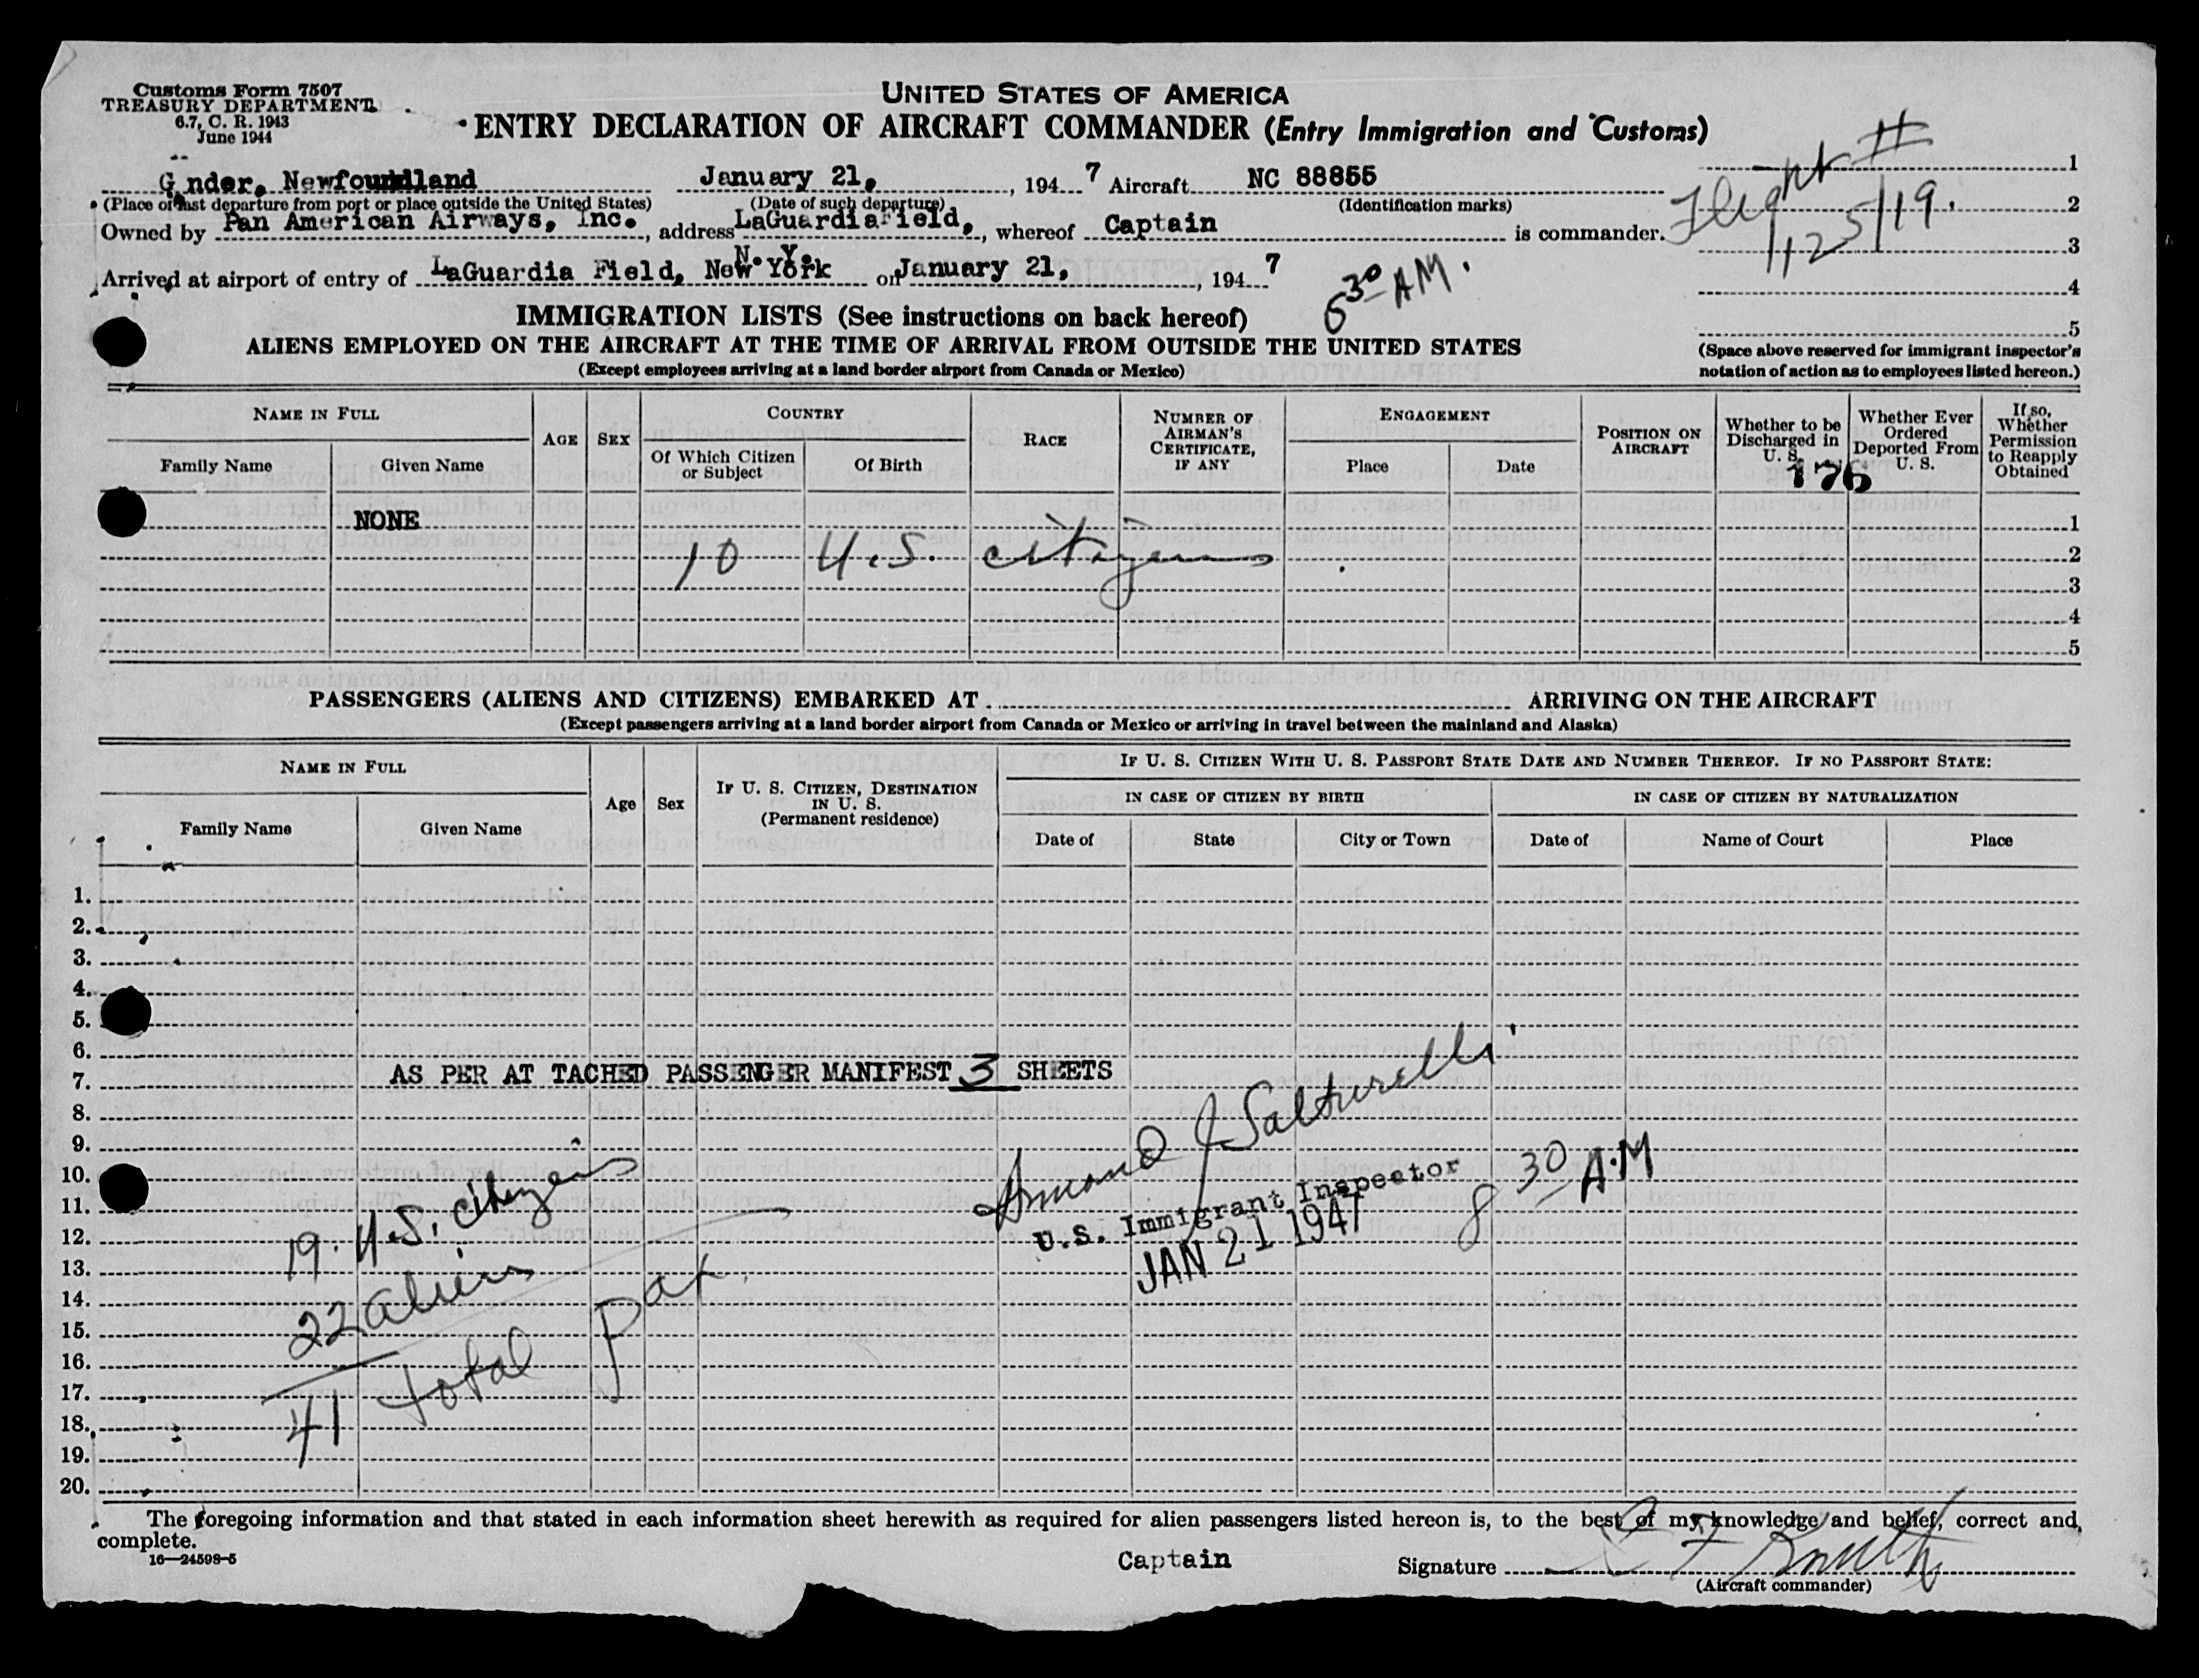 Customs Form 7507
TREASURY DEPARTMENT
6.7, C. R. 1943
June 1944
UNITED STATES OF AMERICA
ENTRY DECLARATION OF AIRCRAFT COMMANDER (Entry Immigration and Customs)
Flight #
1125/19.
1
2
3
4
5
(Space above reserved for immigrant inspector's
notation of action as to employees listed hereon.)
G nder, Newfoundland January 21, , 194 7 Aircraft NC 88855
(Place of last departure from port or place outside the United States) (Date of such departure) (Identification marks)
Owned by Pan American Airways, Inc. , address LaGuardia Field, , whereof Captain is commander.
N. Y.
Arrived at airport of entry of LaGuardia Field, New York on January 21, , 194 7
30 AM.
IMMIGRATION LISTS (See instructions on back hereof)
ALIENS EMPLOYED ON THE AIRCRAFT AT THE TIME OF ARRIVAL FROM OUTSIDE THE UNITED STATES
(Except employees arriving at a land border airport from Canada or Mexico)
NAME IN FULL
Family Name Given Name
AGE
SEX
COUNTRY
Of Which Citizen or Subject
Of Birth
RACE
NUMBER OF AIRMAN'S CERTIFICATE, IF ANY
ENGAGEMENT
Place Date
POSITION ON AIRCRAFT
Whether to be Discharged in U. S.
Whether Ever Ordered Deported From U. S.
If so, Whether Permission to Reapply Obtained
176
NONE 1
10 U.S. citizens 2
3
4
5
PASSENGERS (ALIENS AND CITIZENS) EMBARKED AT ARRIVING ON THE AIRCRAFT
(Except passengers arriving at a land border airport from Canada or Mexico or arriving in travel between the mainland and Alaska)
NAME IN FULL
Family Name Given Name
Age
Sex
IF U. S. CITIZEN, DESTINATION IN U. S.
(Permanent residence)
IF U. S. CITIZEN WITH U. S. PASSPORT STATE DATE AND NUMBER THEREOF. IF NO PASSPORT STATE:
IN CASE OF CITIZEN BY BIRTH IN CASE OF CITIZEN BY NATURALIZATION
Date of State City or Town Date of Name of Court Place
1.
2.
3.
4.
5.
6.
7. AS PER AT TACHED PASSENGER MANIFEST 3 SHEETS
8.
9.
10.
11.
12.
13.
14.
15.
16.
17.
18.
19.
20.
Armand J Salturelli
U.S. Immigrant Inspector
JAN 21 1947
8 30 A.M
19. U.S. citizens
22 aliens
41 total pax.
The foregoing information and that stated in each information sheet herewith as required for alien passengers listed hereon is, to the best of my knowledge and belief, correct and
complete.
16—24598-5
Captain
Signature
(Aircraft commander)